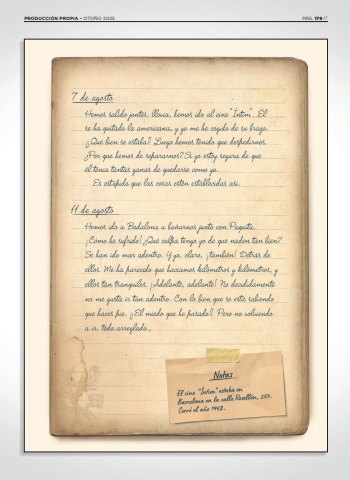 PRODUCCIÓN PROPIA • OTOÑO 2025
PÁG. 178 //
7 de agosto
Hemos salido juntos, lluvia, hemos ido al cine "Íntim". Él
se ha quitado la americana, y yo me he cogido de su brazo.
¡¡Qué bien se estaba!! Luego hemos tenido que despedirnos.
¿Por qué hemos de separarnos? Si yo estoy segura de que
él tenía tantas ganas de quedarse como yo.
Es estúpido que las cosas estén establecidas así.
11 de agosto
Hemos ido a Badalona a bañarnos junto con Paquita.
¡Cómo he sufrido! ¿Qué culpa tengo yo de que naden tan bien?
Se han ido mar adentro. Y yo, claro, ¡también! Detrás de
ellos. Me ha parecido que hacíamos kilómetros y kilómetros, y
ellos tan tranquilos. ¡Adelante, adelante! No decididamente
no me gusta ir tan adentro. Con lo bien que se está sabiendo
que haces pie. ¡¡El miedo que he pasado!! Pero no volviendo
a ir, todo arreglado...
Notas
El cine "Íntim" estaba en
Barcelona en la calle Rosellón, 257.
Cerró el año 1968.